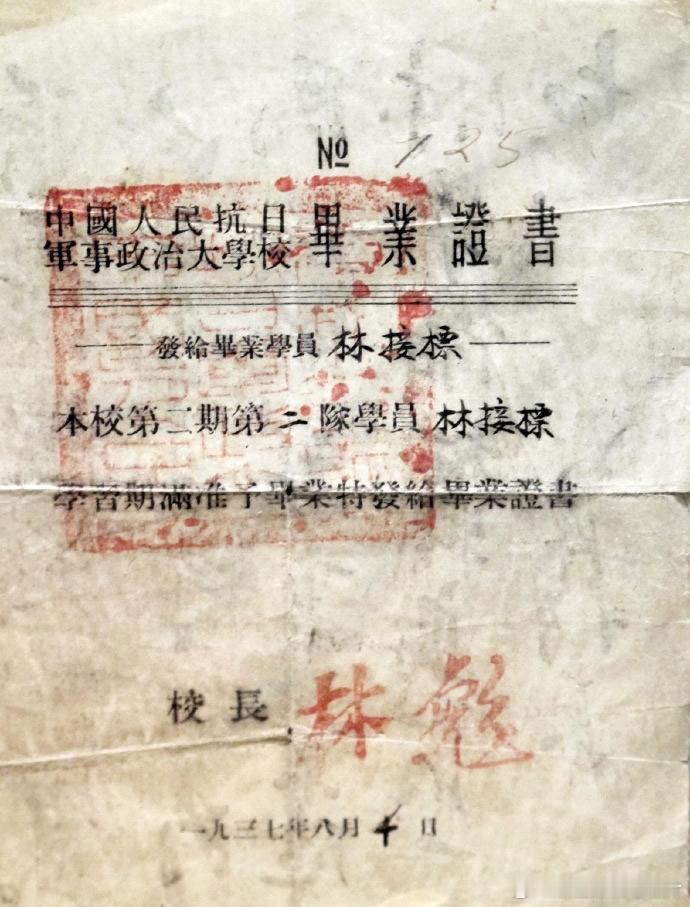 № 125
中國人民抗日
軍事政治大學校 畢業證書
發給畢業學員 林接標
本校第二期第二隊學員 林接標
學習期滿准予畢業特發給畢業證書
校長 林彪
一九三七年八月十日